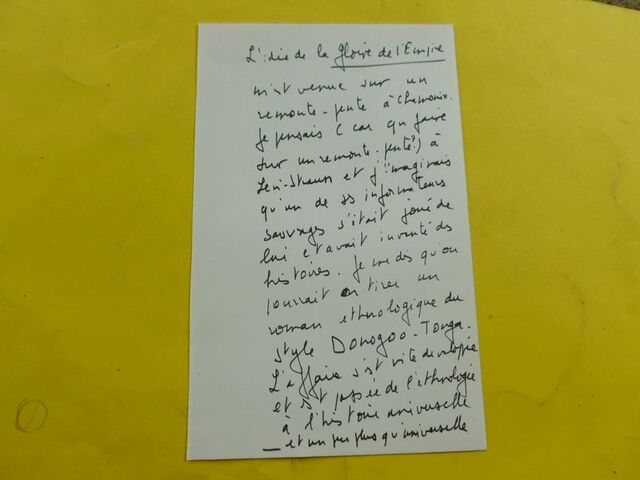 L'idée de la gloire de l'Empire
m'est venue sur un
remonte-pente à Chamonix.
Je pensais (car qu faire
sur un remonte-pente?) à
Levi-Strauss et j'imaginais
qu'un de ses informateurs
sauvages s'était joué de
lui et avait inventé des
histoires. Je me dis qu'on
pouvait en tirer un
roman ethnologique du
style Donogoo-Tonga.
L'affaire s'est vite développée
et est passée de l'ethnologie
à l'histoire universelle
— et un peu plus qu'universelle.